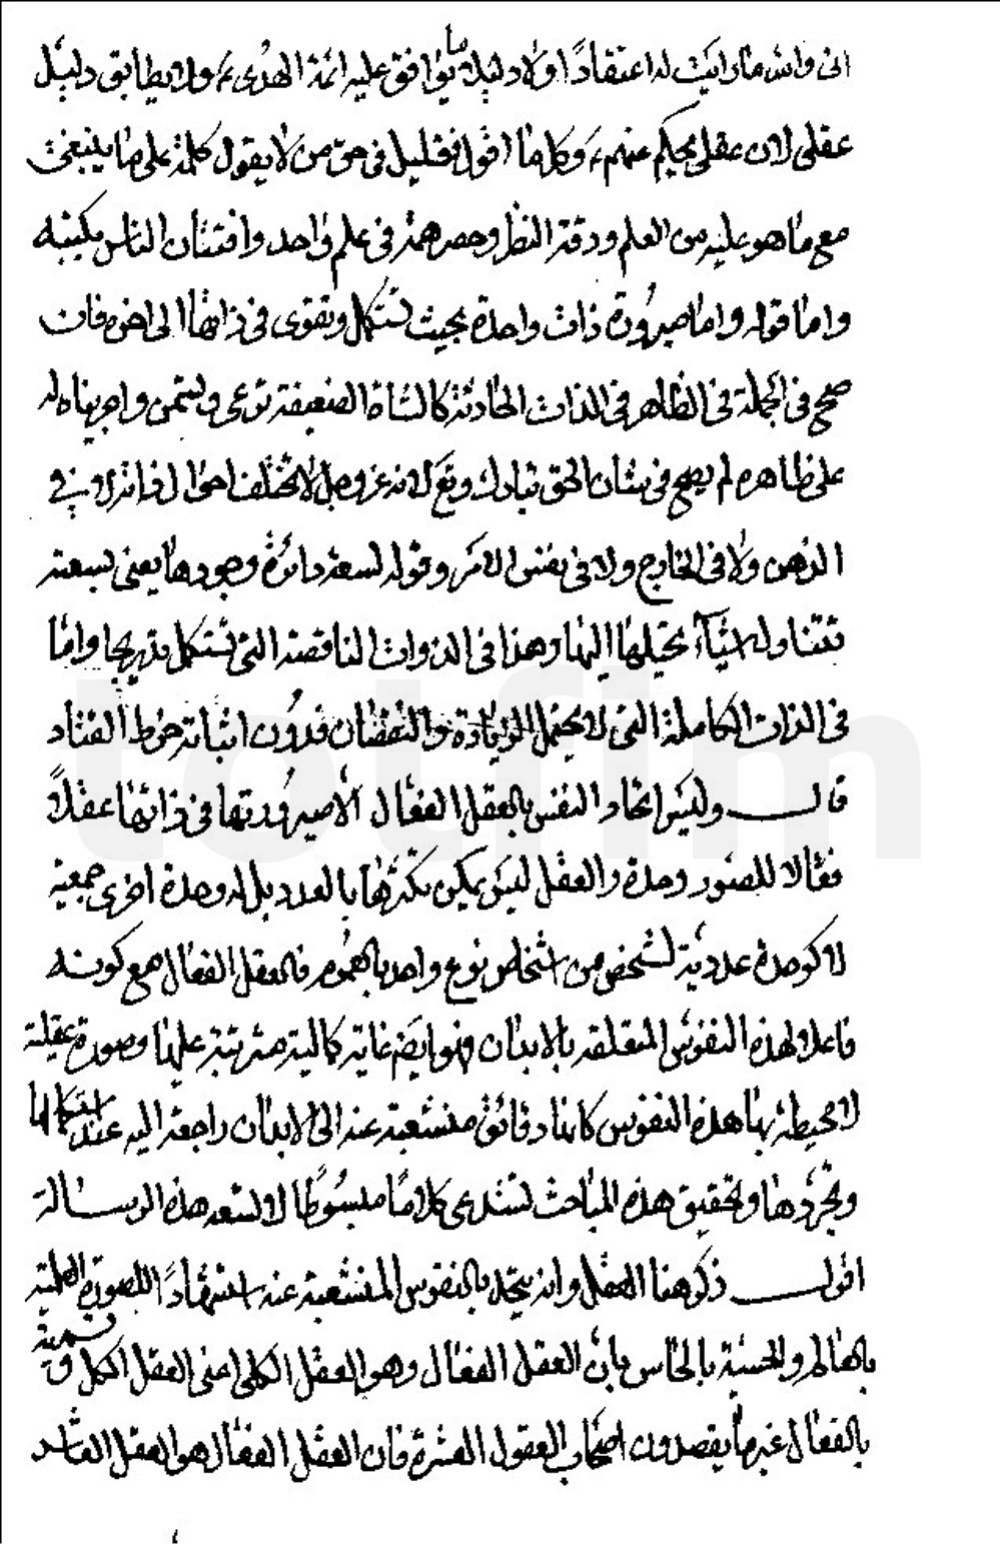 انى والله ما رايت له اعتقاداً ولا دليلا يوافق عليه ائمة الهدى ع ولا يطابق دليل
عقلى لان عقلى يحكم عنهم ع وكل ما اقول فقليل فى حق من لا يقول كلمة على ما ينبغى
مع ما هو عليه من العلم ودقة النظر وحصر همته فى علم واحد وافتتان الناس بكتبه
واما قوله واما صيرورة ذات واحدة بحيث تستكمل وتقوى فى ذاتها الى اخره فان
صحح فى الجملة فى الظاهر فى الذات الحادثة كالشاة الضعيفة ترعى وتسمن واجريناه له
على ظاهره لم يصح فى شان الحق تبارك وتع لانه عز وجل لا تختلف احوال ذاته لا فى
الذهن ولا فى الخارج ولا فى نفس الامر وقوله لسعة دائرة وجودها يعنى بسعته
تتناول اشيآء بحيلها اليها وهذا فى الذوات الناقصة التى تستكمل تدريجا واما
فى الذات الكاملة التى لا يحتمل الزيادة والنقصان فدون اثباته خرط القتاد
قال وليس اتحاد النفس بالعقل الفعال الا صيرورتها فى ذاتها عقلاً
فعالا للصور وحدة والعقل ليس يمكن تكثرها بالعدد بل له وحدة اخرى جمعية
لا كوحدة عددية لشخص من اشخاص نوع واحد بالعموم فالعقل الفعال مع كونه
فاعلا لهذه النفوس المتعلقة بالابدان فهو ايضا غاية كمالية مترتبة عليها وصورة عقلية
لا محيطة بها هذه النفوس كانها دقائق منشعبة عنه الى الابدان راجعة اليه عند استكمالها
وتجردها وتحقيق هذه المباحث تستدعى كلاما مبسوطا لا تسعه هذه الرسالة
اقول ذكر هنا العقل وانه يتحد بالنفوس المنشعبة عنه استشهاداً للصورة العلمية
بالعالم والحسية بالحاس بان العقل الفعال وهو العقل الكلى اعنى العقل الكل وتسمية
بالفعال غير ما يقصدون اصحاب العقول العشرة فان العقل الفعال هو العقل العاشر